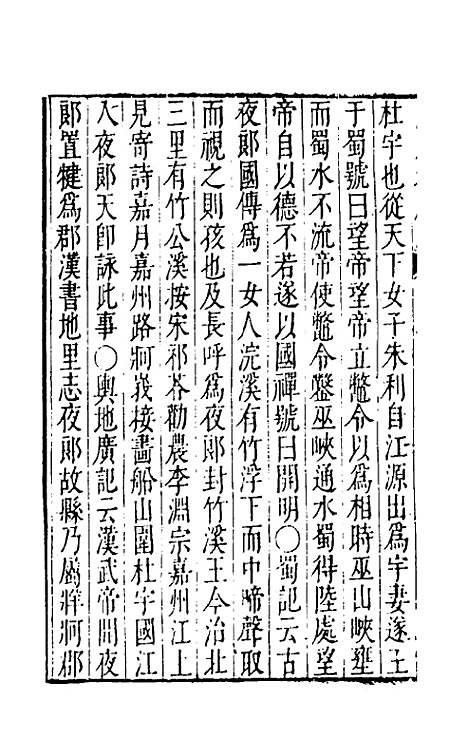 杜宇也從天下女子朱利自江源出爲宇妻遂王
于蜀號曰望帝望帝立鼈令以爲相時巫山峽壅
而蜀水不流帝使鼈令鑿巫峽通水蜀得陸處望
帝自以德不若遂以國禪號曰開明〇蜀記云古
夜郎國傳爲一女人浣溪有竹浮下而中啼聲取
而視之則孩也及長呼爲夜郎封竹溪王今治北
三里有竹公溪按宋祁荅勸農李淵宗嘉州江上
見寄詩嘉月嘉州路牁峩接畵船山圍杜宇國江
入夜郎天卽詠此事〇輿地廣記云漢武帝開夜
郎置犍爲郡漢書地里志夜郎故縣乃屬牂牁郡